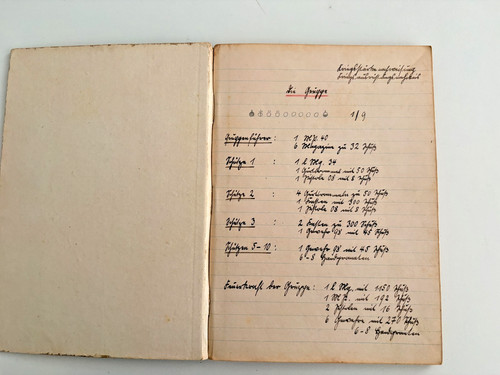 Kriegsstärkenachweisung
Die Gruppe
1/9
Gruppenführer : 1 M.P. 40
6 Magazin zu 32 Schuß
Schütze 1 : 1 l. Mg. 34
1 Gurttrommel mit 50 Schuß
1 Pistole 08 mit 8 Schuß
Schütze 2 : 4 Gurttrommeln zu 50 Schuß
1 Kasten mit 300 Schuß
1 Pistole 08 mit 8 Schuß
Schütze 3 : 2 Kasten zu 300 Schuß
1 Gewehr 98 mit 45 Schuß
Schützen 5-10 : 1 Gewehr 98 mit 45 Schuß
6-8 Handgranaten
Feuerkraft der Gruppe : 1 l. Mg. mit 1150 Schuß
1 M.P. mit 192 Schuß
2 Pistolen mit 16 Schuß
6 Gewehre mit 270 Schuß
6-8 Handgranaten